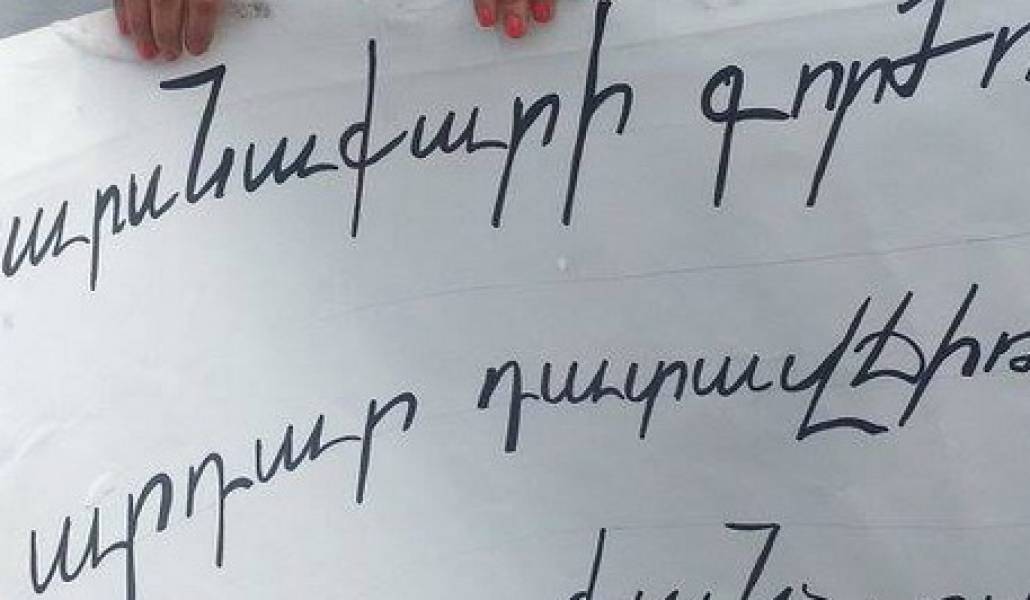 արանափարի գործո
արդար դատավճիռ